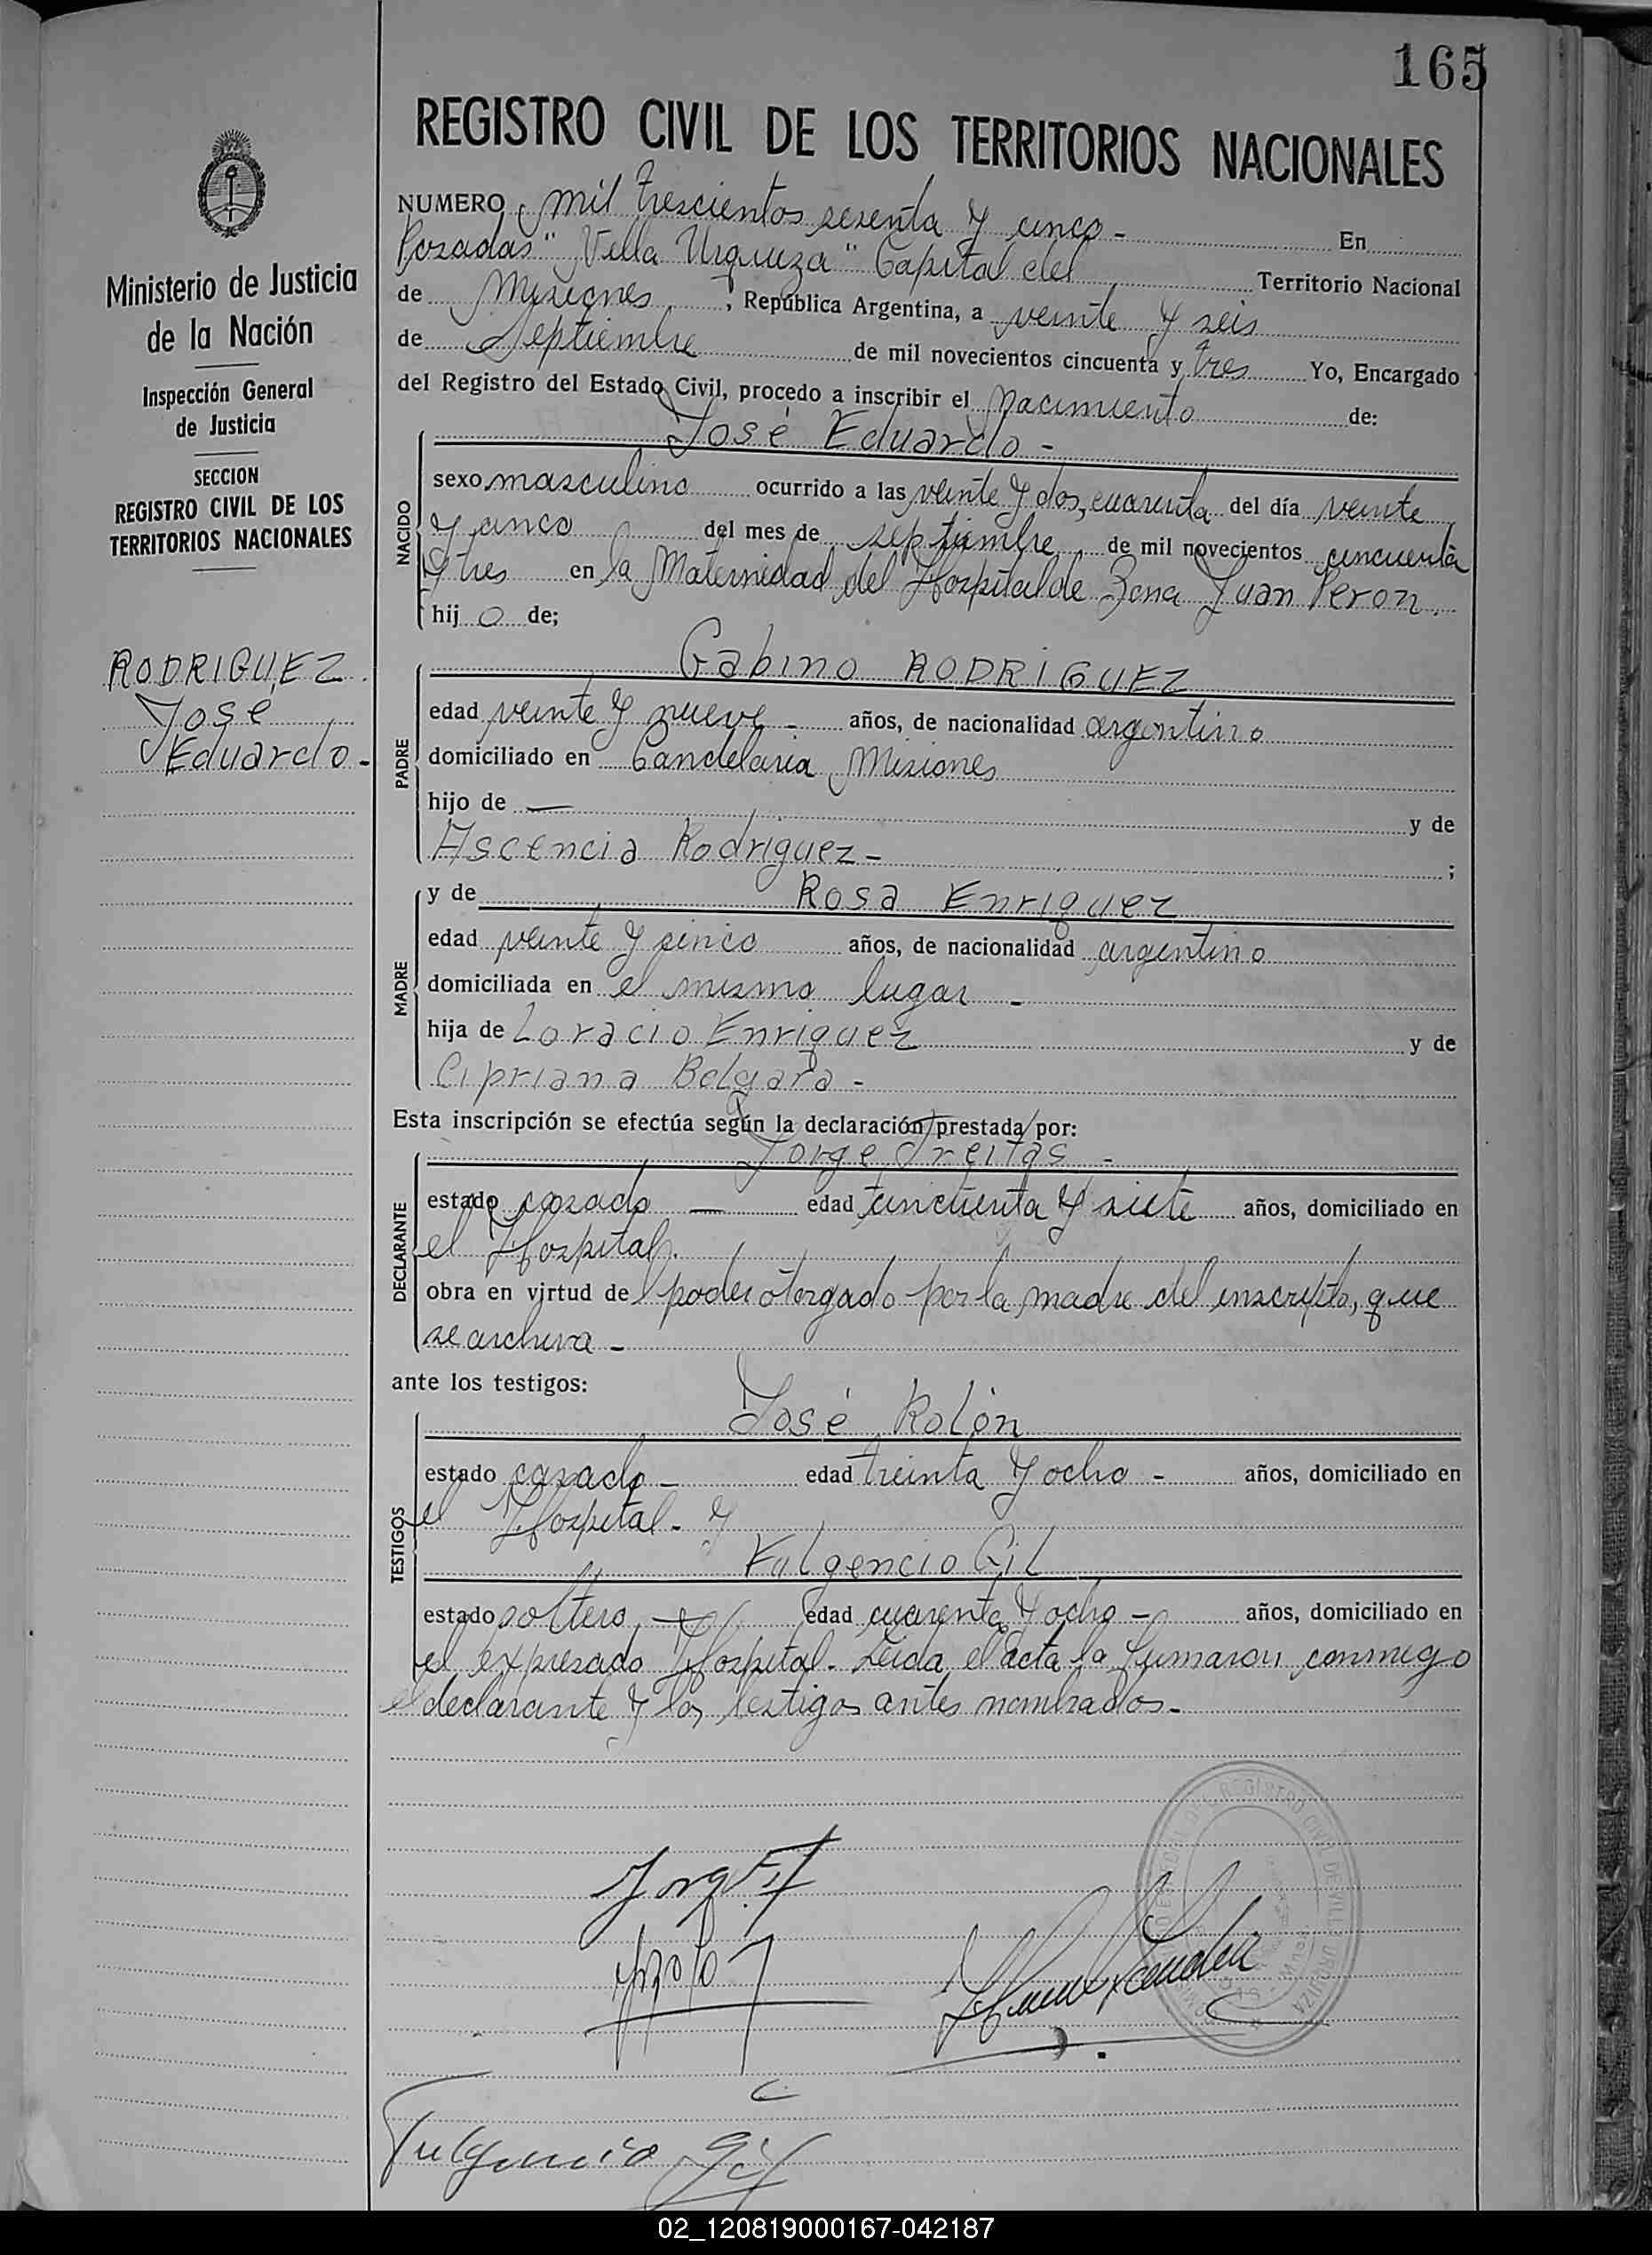 165
REGISTRO CIVIL DE LOS TERRITORIOS NACIONALES
Ministerio de Justicia
de la Nación
Inspección General
de Justicia
SECCION
REGISTRO CIVIL DE LOS
TERRITORIOS NACIONALES
RODRIGUEZ
José
Eduardo -
NUMERO mil trescientos sesenta y cinco - En
Posadas "Villa Urquiza" Capital del Territorio Nacional
de Misiones, República Argentina, a veinte y seis
de Septiembre de mil novecientos cincuenta y tres Yo, Encargado
del Registro del Estado Civil, procedo a inscribir el Nacimiento de:
José Eduardo -
NACIDO
sexo masculino ocurrido a las veinte y dos, cuarenta del día veinte
y cinco del mes de septiembre de mil novecientos cincuenta
y tres en la Maternidad del Hospital de Zona Juan Peron.
hij o de;
PADRE
Gabino RODRIGUEZ
edad veinte y nueve - años, de nacionalidad argentino
domiciliado en Candelaria, Misiones
hijo de — y de
Ascencia Rodriguez - ;
MADRE
y de Rosa Enriquez
edad veinte y cinco años, de nacionalidad argentino
domiciliada en el mismo lugar -
hija de Loracio Enriquez y de
Cipriana -
Esta inscripción se efectúa según la declaración prestada por:
DECLARANTE
Jorge Freitas -
estado casado — edad cincuenta y siete años, domiciliado en
el Hospital.
obra en virtud del poder otorgado por la madre del inscripto, que
se archiva -
ante los testigos:
TESTIGOS
José Rolón
estado casado - edad treinta y ocho - años, domiciliado en
el Hospital - y
Fulgencio Gil
estado soltero — edad cuarenta y ocho - años, domiciliado en
el expresado Hospital - Leida el acta la firmaron conmigo
el declarante y los testigos antes nombrados -
REGISTRO CIVIL DE VILLA URQUIZA
Fulgencio Gil
02_120819000167-042187